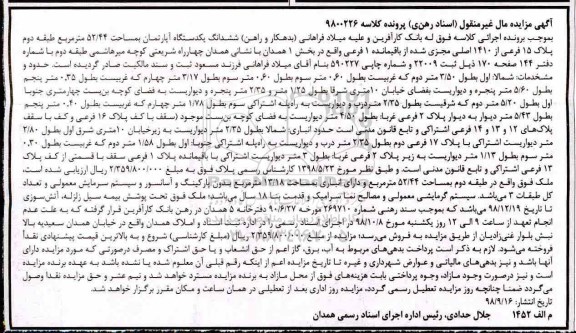 آگهی مزایده مال غیرمنقول (اسناد رهنی) پرونده کلاسه ۹۸۰۰۲۲۶
بموجب پرونده اجرائی کلاسه فوق له بانک کارآفرین و علیه میلاد فراهانی (بدهکار و راهن) ششدانگ یکدستگاه آپارتمان بمساحت ۵۲/۴۴ مترمربع طبقه دوم
پلاک ۱۵ فرعی از ۱۴۱۰ اصلی مجزی شده از باقیمانده ۱ فرعی واقع در بخش ۱ همدان با نشانی همدان چهارراه شریعتی کوچه میرهاشمی طبقه دوم با شماره
دفتر ۱۴۴ صفحه ۱۷۰ ذیل ثبت ۲۲۰۰۹ و شماره چاپی ۵۹۰۲۲۷ بنام آقای میلاد فراهانی فرزند مسعود ثبت و سند مالکیت صادر گردیده است. حدود و
مشخصات: شمالا: اول بطول ۳/۵۰ متر دوم که غربیست بطول ۰/۶۰ متر سوم بطول ۰/۶۰ متر سوم بطول ۳/۱۷ متر چهارم که غربیست بطول ۰/۳۵ متر پنجم
بطول ۵/۶۰ متر پنجره و دیواریست بفضای خیابان ۱۰متری شرقا بطول ۱/۲۵ متر و ۲/۳۵ متر پنجره و دیواریست به فضای کوچه بن‌بست چهارمتری جنوبا
اول بطول ۵/۲۰ متر دوم که شرقیست بطول ۲/۳۵ متردرب و دیواریست به راه‌پله اشتراکی سوم بطول ۱/۷۸ متر چهارم که غربیست بطول ۰/۴۰ متر پنجم
بطول ۵/۴۳ متر دیوار به دیوار پلاک ۲ فرعی غربا: بطول ۴/۵۰ متر دیواریست به فضای کوچه بن‌بست موجود (سقف با کف پلاک ۱۶ فرعی و کف با سقف
پلاک‌های ۱۲ و ۱۳ و ۱۴ فرعی اشتراکی و تابع قانون مدنی است حدود انباری: شمالا بطول ۲/۳۵ متر دیواریست به زیرخیابان ۱۰متری شرق اول بطول ۲/۸۰
متر دیواریست اشتراکی با پلاک ۱۷ فرعی دوم بطول ۲/۳۵ متر درب و دیواریست به راه‌پله اشتراکی جنوبا: اول بطول ۱/۵۸ متر دوم که غربیست بطول ۰/۳۰
متر سوم بطول ۱/۱۳ متر دیواریست به زیر پلاک ۲ فرعی غربا: بطول ۳ متر دیواریست اشتراکی با باقیمانده پلاک ۱ فرعی سقف با قسمتی از کف پلاک
۱۳ فرعی اشتراکی و تابع قانون مدنی است. و طبق نظر مورخ ۱۳۹۸/۵/۲۳ کارشناس رسمی پلاک فوق به مبلغ ۲/۳۵۹/۸۰۰/۰۰۰ ریال ارزیابی شده است.
ملک فوق واقع در طبقه دوم بمساحت ۵۲/۴۴ مترمربع و دارای انباری بمساحت ۱۳/۱۸ مترمربع بدون پارکینگ و آسانسور و سیستم سرمایش معمولی و تعداد
کل طبقات ۳ می‌باشد. سیستم گرمایشی معمولی و مصالح نما سرامیک و قدمت بنا ۱۸ سال می‌باشد؛ ملک فوق تحت پوشش بیمه سیل زلزله، آتش‌سوزی
تا تاریخ ۹۸/۱۲/۱۹ می‌باشد که بموجب سند رهنی شماره ۲۶۹۷۱۰ مورخه ۹۰/۶/۲۷ دفترخانه ۵ همدان در رهن بانک کارآفرین قرار گرفته که به علت عدم
انجام تعهد از ساعت ۹ الی ۱۲ روز یکشنبه مورخ ۹۸/۱۰/۸ در اداره اجرای اسناد رسمی همدان واقع در شهرک فرهنگیان ساختمان ثبت اسناد و املاک همدان واقع در خیابان همدان سعیدیه بالا
نبش بلوار غنی‌زادیان از طریق مزایده به فروش می‌رسد؛ مزایده از مبلغ ۲/۳۵۹/۸۰۰/۰۰۰ ریال (مبلغ کارشناسی) شروع و به بالاترین قیمت پیشنهادی نقداً
فروخته می‌شود. لازم به ذکر است پرداخت بدهی‌های مربوط به آب، برق، گاز اعم از حق انشعاب و یا حق اشتراک و مصرف درصورتی که مورد مزایده دارای
آنها باشد و نیز بدهی‌های مالیاتی و عوارض شهرداری و غیره تا تاریخ مزایده اعم از اینکه رقم قطعی آن معلوم شده یا نشده باشد به عهده برنده مزایده
است و نیز درصورت وجود مازاد، وجوه پرداختی بابت هزینه‌های فوق از محل مازاد به برنده مزایده مسترد خواهد شد و نیم عشر و حق مزایده نقدا وصول
می‌گردد ضمنا چنانچه روز مزایده تعطیل رسمی گردد، مزایده روز اداری بعد از تعطیلی در همان ساعت و مکان مقرر برگزار خواهد شد.
تاریخ انتشار: ۹۸/۹/۱۶
م الف ۱۴۵۲ جلال حدادی، رئیس اداره اجرای اسناد رسمی همدان